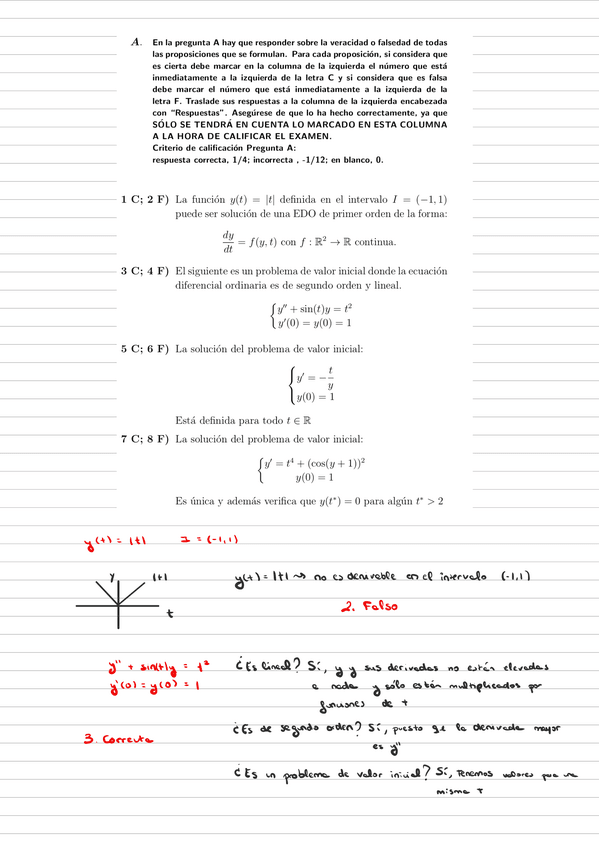 A. En la pregunta A hay que responder sobre la veracidad o falsedad de todas
las proposiciones que se formulan. Para cada proposición, si considera que
es cierta debe marcar en la columna de la izquierda el número que está
inmediatamente a la izquierda de la letra C y si considera que es falsa
debe marcar el número que está inmediatamente a la izquierda de la
letra F. Traslade sus respuestas a la columna de la izquierda encabezada
con “Respuestas”. Asegúrese de que lo ha hecho correctamente, ya que
SÓLO SE TENDRÁ EN CUENTA LO MARCADO EN ESTA COLUMNA
A LA HORA DE CALIFICAR EL EXAMEN.
Criterio de calificación Pregunta A:
respuesta correcta, 1/4; incorrecta , -1/12; en blanco, 0.
1 C; 2 F) La función y(t) = |t| definida en el intervalo I = (−1, 1)
puede ser solución de una EDO de primer orden de la forma:
dy/dt = f(y, t) con f : ℝ² → ℝ continua.
3 C; 4 F) El siguiente es un problema de valor inicial donde la ecuación
diferencial ordinaria es de segundo orden y lineal.
y″ + sin(t)y = t²
y′(0) = y(0) = 1
5 C; 6 F) La solución del problema de valor inicial:
y′ = −t/y
y(0) = 1
Está definida para todo t ∈ ℝ
7 C; 8 F) La solución del problema de valor inicial:
y′ = t⁴ + (cos(y + 1))²
y(0) = 1
Es única y además verifica que y(t*) = 0 para algún t* > 2
y(t) = |t| I = (-1,1)
y |t| y(t) = |t| → no es derivable en el intervalo (-1,1)
t
2. Falso
y″ + sin(t)y = t² ¿Es lineal? Sí, y y sus derivadas no están elevadas
y′(0) = y(0) = 1 a nada y sólo están multiplicados por
funciones de t
3. Correcta ¿Es de segundo orden? Sí, puesto que la derivada mayor
es y″
¿Es un problema de valor inicial? Sí, tenemos valores para un
mismo t